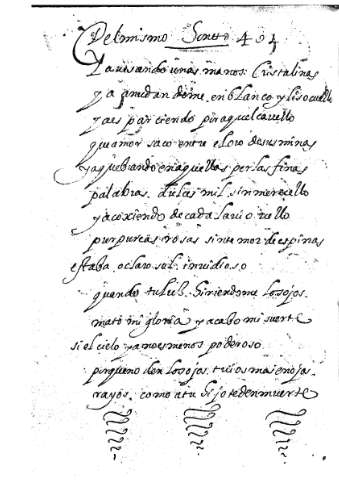 Del mismo Soneto 494
Ya uesando unas manos Cristalinas
ya anudandome en blanco y liso cuello
ya esparciendo por aquel cauello
que amor saco entre el oro de sus minas
ya quebrando en aquellas perlas finas
palabras dulces mil sin merecello
ya coxiendo de cada lauio uello
purpureas rosas sin temor de espinas
estaba o claro sol inuidioso
quando tu luz hiriendome los ojos
mato mi gloria y acabo mi suerte
si el cielo ya no es menos poderoso
porque no den los ojos tuios mas enojos
rayos como a tu hijo te den muerte